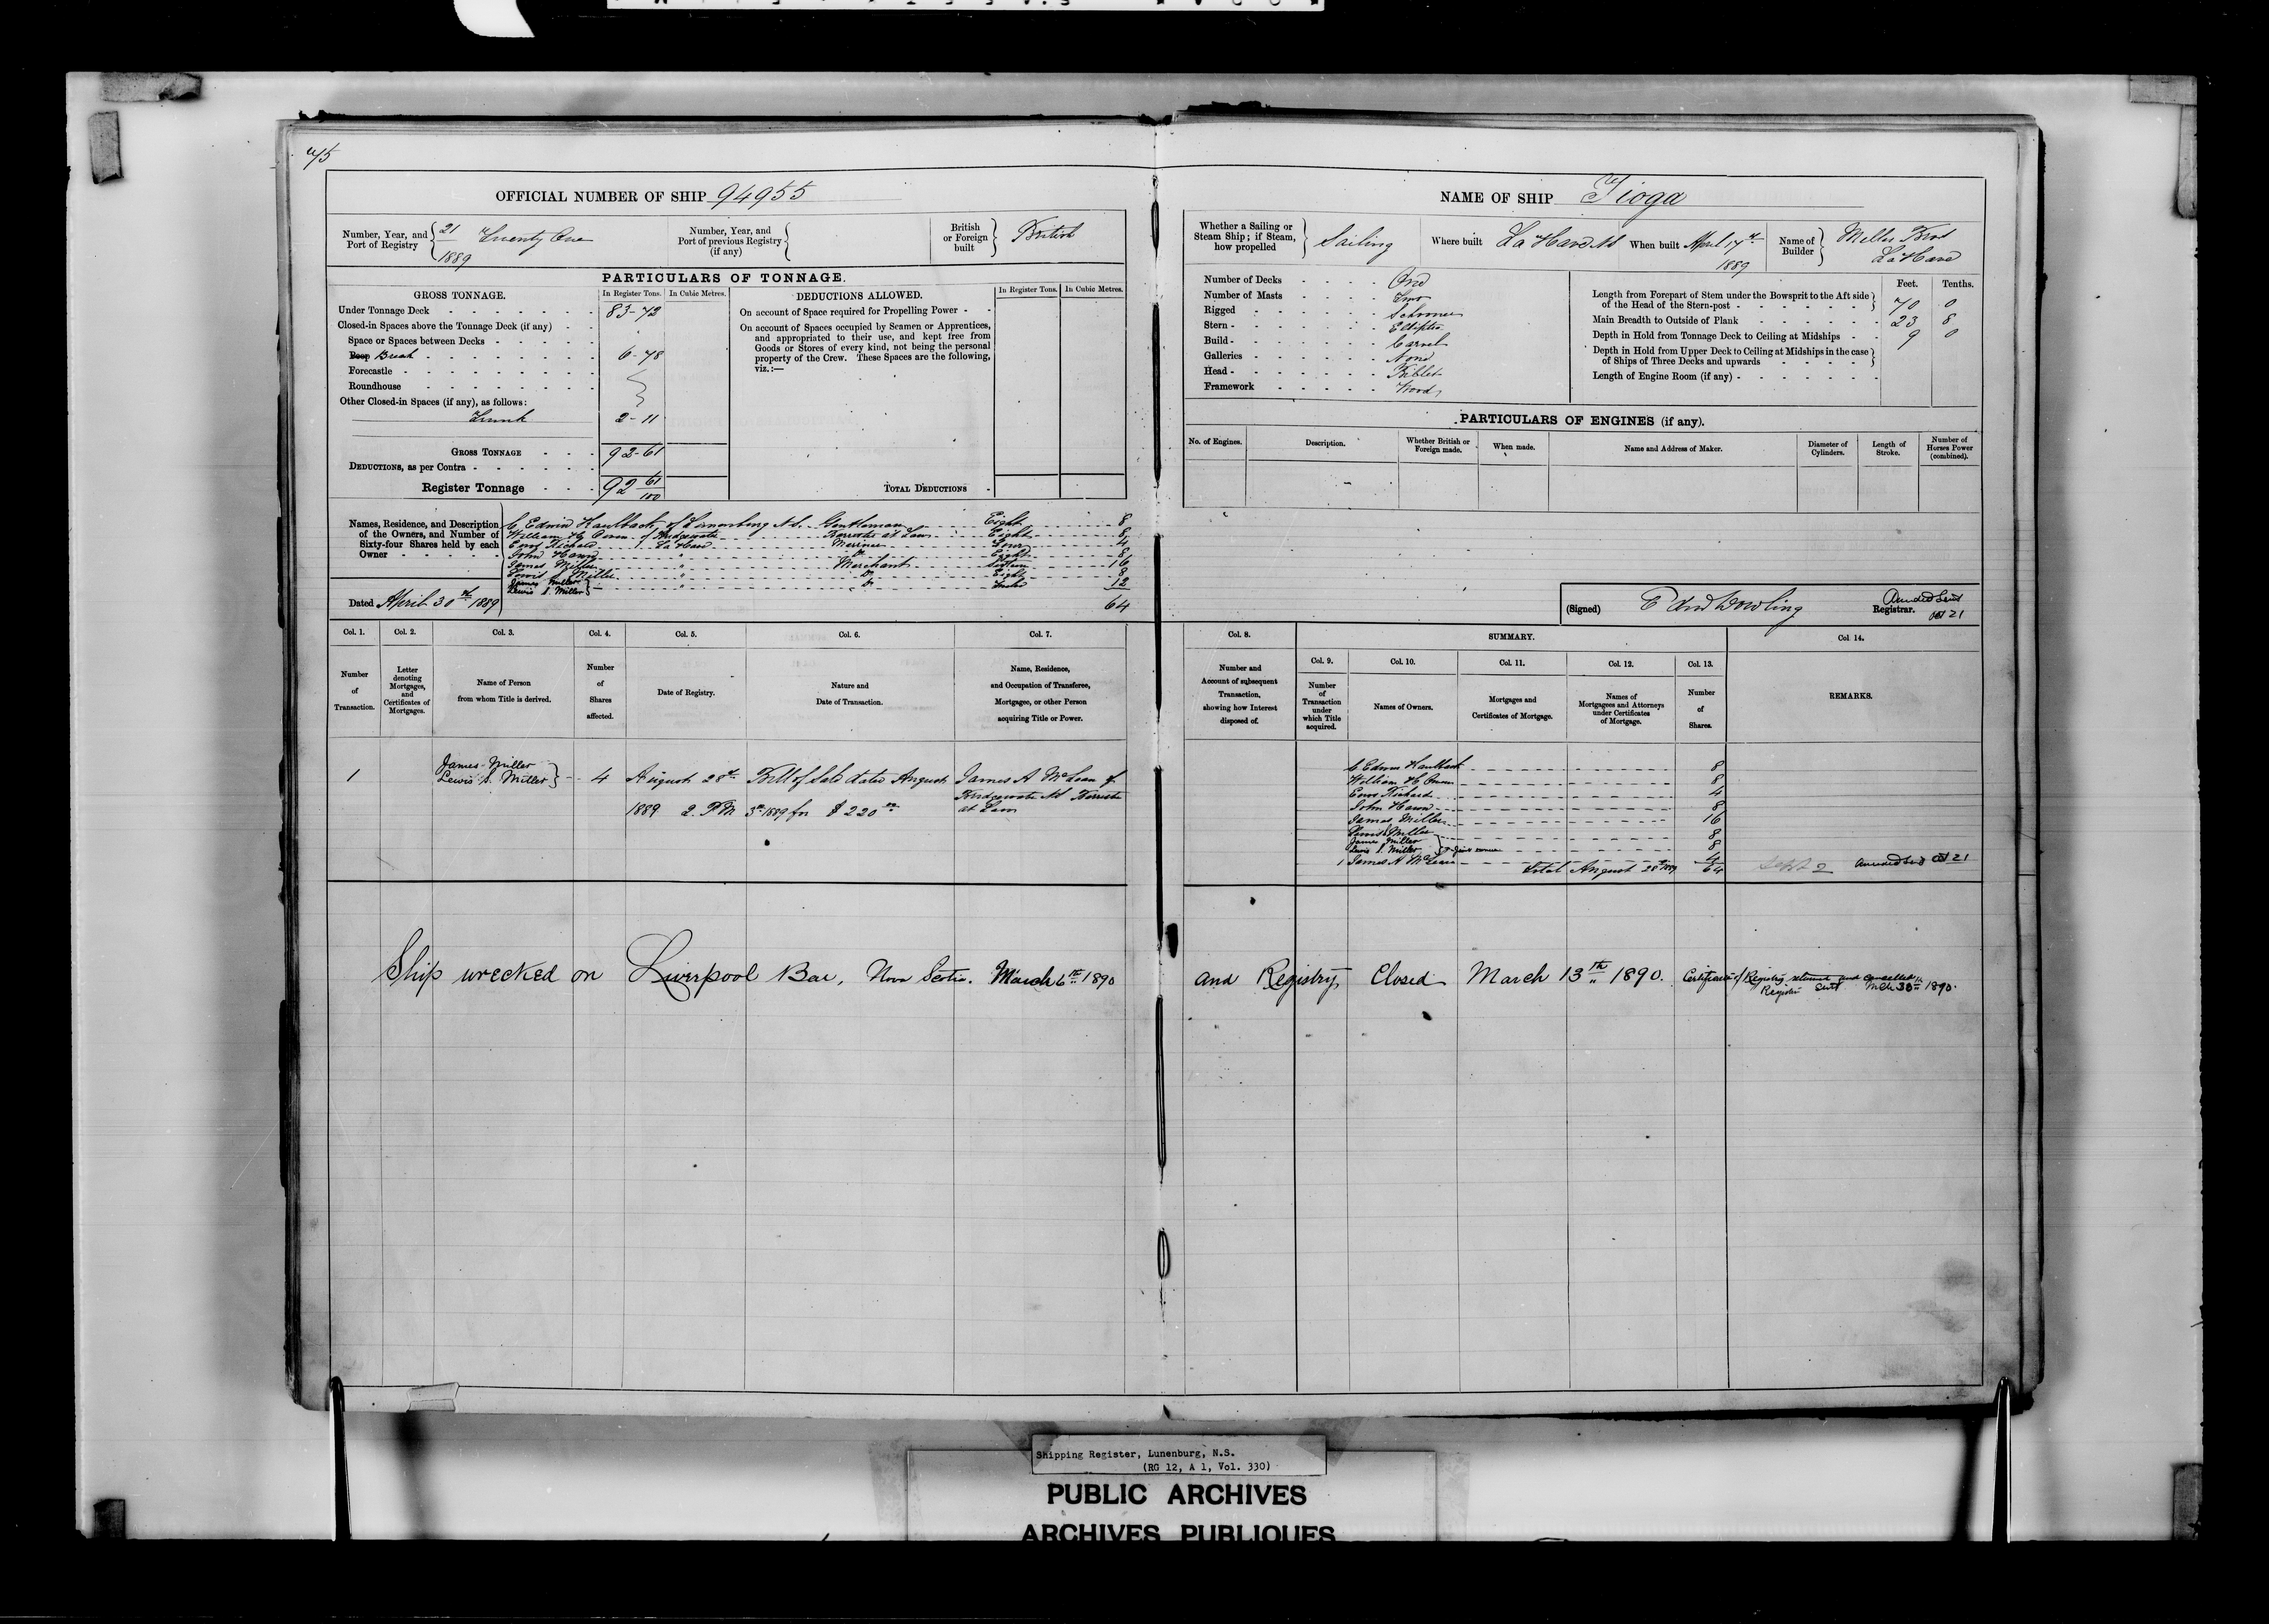 45
OFFICIAL NUMBER OF SHIP 94955
Number, Year, and Port of Registry 21 1889 Twenty One
Number, Year, and Port of previous Registry (if any)
British or Foreign built British
PARTICULARS OF TONNAGE.
GROSS TONNAGE.
In Register Tons. In Cubic Metres.
DEDUCTIONS ALLOWED.
In Register Tons. In Cubic Metres.
Under Tonnage Deck 83-72
Closed-in Spaces above the Tonnage Deck (if any)
Space or Spaces between Decks
Poop Break 6-78
Forecastle
Roundhouse
Other Closed-in Spaces (if any), as follows:
Trunk 2-11
GROSS TONNAGE 92-61
DEDUCTIONS, as per Contra
Register Tonnage 92 61/100
On account of Space required for Propelling Power
On account of Spaces occupied by Seamen or Apprentices,
and appropriated to their use, and kept free from
Goods or Stores of every kind, not being the personal
property of the Crew. These Spaces are the following,
viz.:—
TOTAL DEDUCTIONS
Names, Residence, and Description
of the Owners, and Number of
Sixty-four Shares held by each
Owner
C. Edwin Kaulback of Lunenburg N.S. Gentleman Eight 8
William H. Owen of Bridgewater Barrister at Law Eight 8
La Have Mariner Four 4
John Hawn " Do Eight 8
James Miller " Merchant Sixteen 16
Lewis S. Miller " Do Eight 8
James Miller
Lewis S. Miller } " Do Twelve 12
64
Dated April 30th 1889
Col. 1. Col. 2. Col. 3. Col. 4. Col. 5. Col. 6. Col. 7.
Number of Transaction.
Letter denoting Mortgages, and Certificates of Mortgages.
Name of Person from whom Title is derived.
Number of Shares affected.
Date of Registry.
Nature and Date of Transaction.
Name, Residence, and Occupation of Transferee, Mortgagee, or other Person acquiring Title or Power.
1 James Miller
Lewis S. Miller } 4 August 28th Bill of Sale dated August James A McLean of
Bridgewater NS Barrister
1889 2. PM 3rd 1889 for $220 at Law
Ship wrecked on Liverpool Bar, Nova Scotia. March 6th 1890
NAME OF SHIP Tioga
Whether a Sailing or Steam Ship; if Steam, how propelled Sailing
Where built La Have NS
When built April 17th 1889
Name of Builder Miller Bros La Have
Number of Decks One
Number of Masts Two
Rigged Schooner
Stern Elliptic
Build Carvel
Galleries None
Head Billet
Framework Wood
Feet. Tenths.
Length from Forepart of Stem under the Bowsprit to the Aft side
of the Head of the Stern-post 70 0
Main Breadth to Outside of Plank 23 8
Depth in Hold from Tonnage Deck to Ceiling at Midships 9 0
Depth in Hold from Upper Deck to Ceiling at Midships in the case
of Ships of Three Decks and upwards
Length of Engine Room (if any)
PARTICULARS OF ENGINES (if any).
No. of Engines. Description. Whether British or Foreign made. When made. Name and Address of Maker. Diameter of Cylinders. Length of Stroke. Number of Horses Power (combined).
(Signed) Dowling Registrar.
Amended Sent
Oct 21
Col. 8. SUMMARY. Col. 14.
Col. 9. Col. 10. Col. 11. Col. 12. Col. 13.
Number and Account of subsequent Transaction, showing how Interest disposed of.
Number of Transaction under which Title acquired.
Names of Owners.
Mortgages and Certificates of Mortgage.
Names of Mortgagees and Attorneys under Certificates of Mortgage.
Number of Shares.
REMARKS.
C Edwin Kaulback 8
William H Owen 8
4
John Hawn 8
James Miller 16
Lewis S Miller 8
James Miller
Lewis S. Miller } Joint owners 8
1 James A McLean 4
Total August 28th 1889 64
Sept 2 Amended Sent Oct 21
and Registry Closed March 13th 1890. Certificate of Registry returned and cancelled.
Register Sent Mch 30th 1890.
Shipping Register, Lunenburg, N.S.
(RG 12, A 1, Vol. 330)
PUBLIC ARCHIVES
ARCHIVES PUBLIQUES